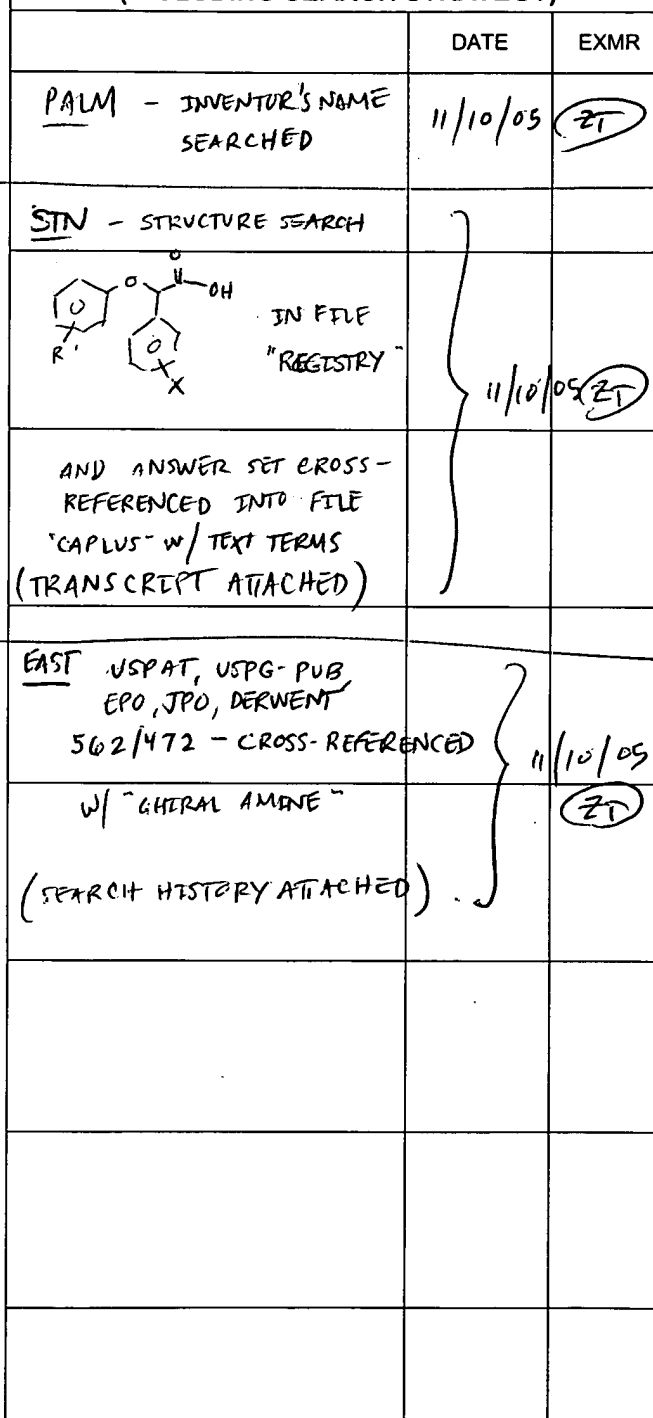 DATE EXMR
PALM - INVENTOR'S NAME
SEARCHED
11/10/05 ZT
STN - STRUCTURE SEARCH
O
O
OH
O
R'
O
X
IN FILE
"REGISTRY"
11/10/05 ZT
AND ANSWER SET CROSS-
REFERENCED INTO FILE
"CAPLUS" W/ TEXT TERMS
(TRANSCRIPT ATTACHED)
EAST USPAT, USPG-PUB,
EPO, JPO, DERWENT
562/472 - CROSS-REFERENCED
11/10/05
W/ "CHIRAL AMINE"
ZT
(SEARCH HISTORY ATTACHED).